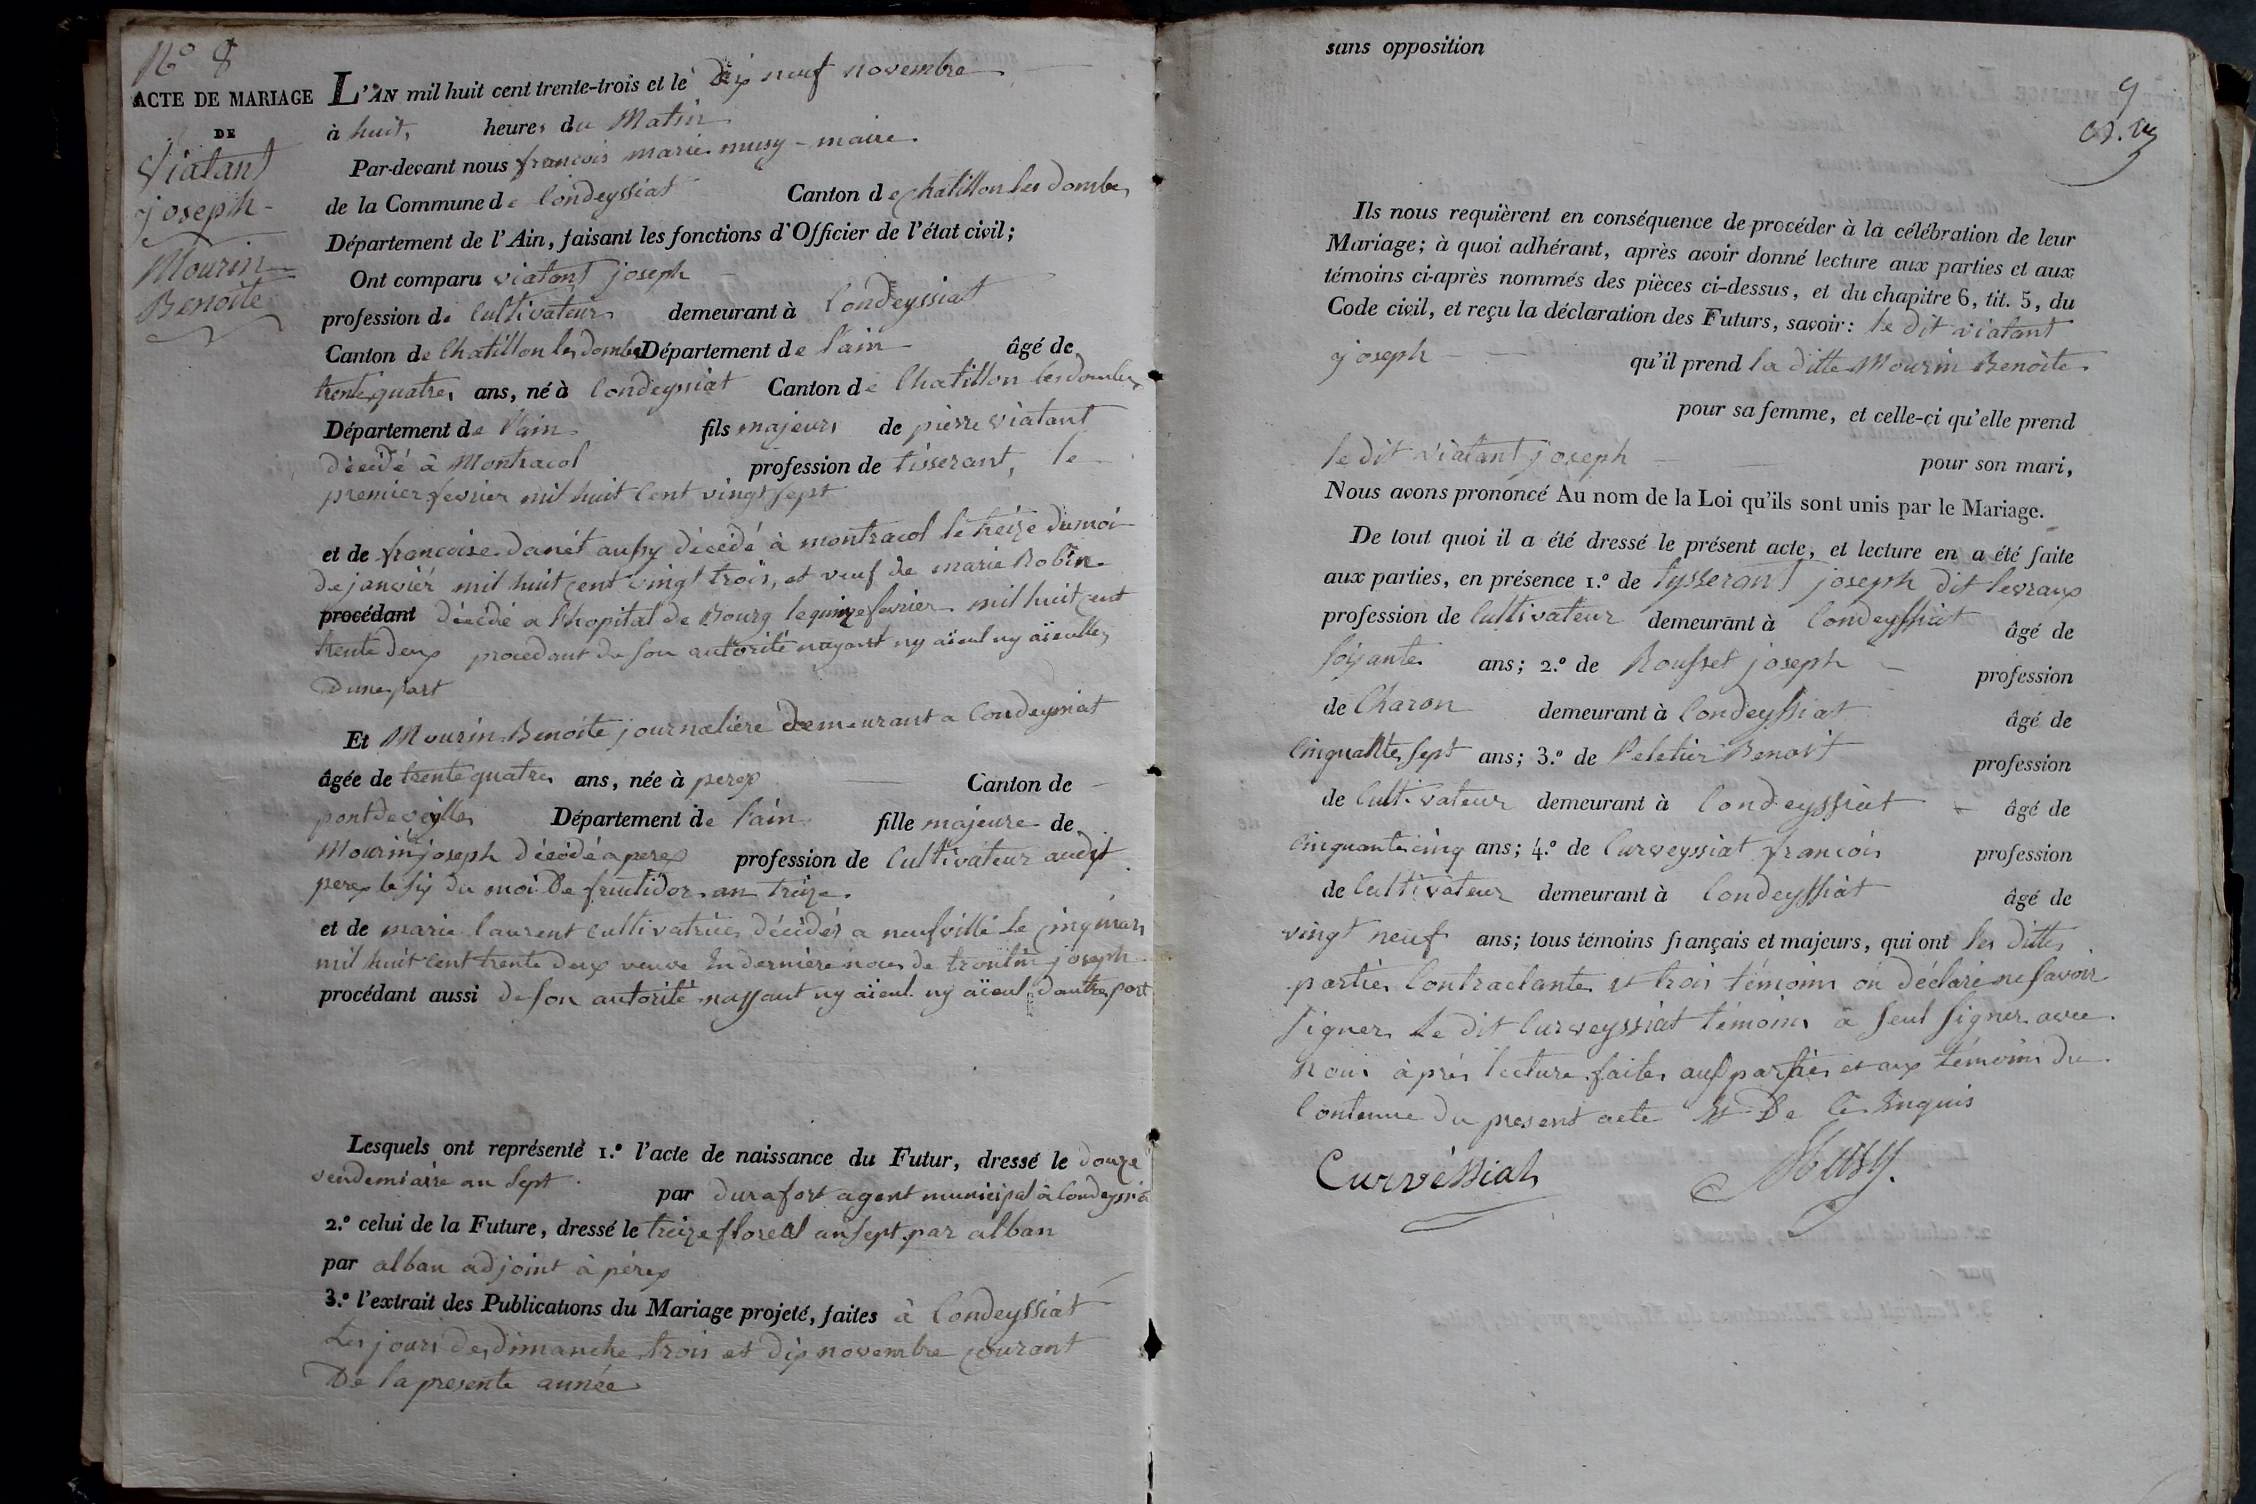 N° 8
ACTE DE MARIAGE
DE
Viatant
joseph
Mourin
Benoite
L'AN mil huit cent trente-trois et le dix neuf novembre
à huit, heures du Matin
Par-devant nous francois marie musy - maire
de la Commune de Condeyssiat Canton de chatillon les dombes
Département de l'Ain, faisant les fonctions d'Officier de l'état civil;
Ont comparu viatant joseph
profession de Cultivateur demeurant à Condeyssiat
Canton de Chatillon les dombes Département de l'ain âgé de
trente quatre ans, né à Condeyssiat Canton de Chatillon les dombes
Département de l'ain fils majeur de pierre viatant
décédé à Montracol profession de tisserant, le
premier fevrier mil huit Cent vingt sept
et de francoise danét aussy décédé à montracol le treize du moi
de janvier mil huit cent vingt trois, et veuf de marie Robin
procédant décédé a l'hopital de Bourg le quinze fevrier mil huit cent
trente deux procedant de son autorité nayant ny aïeul ny aïeulle
dune part
Et Mourin Benoite journaliere demeurant a Condeyssiat
âgée de trente quatre ans, née à perex Canton de
pont de veylle Département de l'ain fille majeure de
Mourin joseph décédé a perex profession de Cultivateur audit
perex le six du moi de fructidor an treize
et de marie laurent cultivatrice décédés a neufville le cinq mars
mil huit Cent trente deux veuve en derniere noces de troulin joseph
procédant aussi de son autorité nayant ny aïeul ny aïeul dautre part
Lesquels ont représenté 1.° l'acte de naissance du Futur, dressé le douze
vendemiaire an sept par durafort agent municipal à Condeyssia
2.° celui de la Future, dressé le treize floreal an sept par alban
par alban adjoint à pérex
3.° l'extrait des Publications du Mariage projeté, faites à Condeyssiat
Les jours de dimanche trois et dix novembre courant
De la presente année
sans opposition
9
Ils nous requièrent en conséquence de procéder à la célébration de leur
Mariage; à quoi adhérant, après avoir donné lecture aux parties et aux
témoins ci-après nommés des pièces ci-dessus, et du chapitre 6, tit. 5, du
Code civil, et reçu la déclaration des Futurs, savoir: le dit viatant
joseph qu'il prend la ditte Mourin Benoite
pour sa femme, et celle-ci qu'elle prend
le dit viatant joseph pour son mari,
Nous avons prononcé Au nom de la Loi qu'ils sont unis par le Mariage.
De tout quoi il a été dressé le présent acte, et lecture en a été faite
aux parties, en présence 1.° de tysserant joseph dit levraux
profession de Cultivateur demeurant à Condeyssiat âgé de
soixante ans; 2.° de Rousset joseph profession
de Charon demeurant à Condeyssiat âgé de
Cinquante sept ans; 3.° de Peletier Benoit profession
de Cultivateur demeurant à Condeyssiat âgé de
Cinquante cinq ans; 4.° de Curveyssiat francois profession
de Cultivateur demeurant à Condeyssiat âgé de
vingt neuf ans; tous témoins français et majeurs, qui ont les dittes
parties Contractante et trois témoins on déclaré ne savoir
signer le dit Curveyssiat témoins a seul signer avec
Nous après lecture faites aux parties et aux témoins du
Contenue du present acte et de ce enquis
Curvéssiat Musy